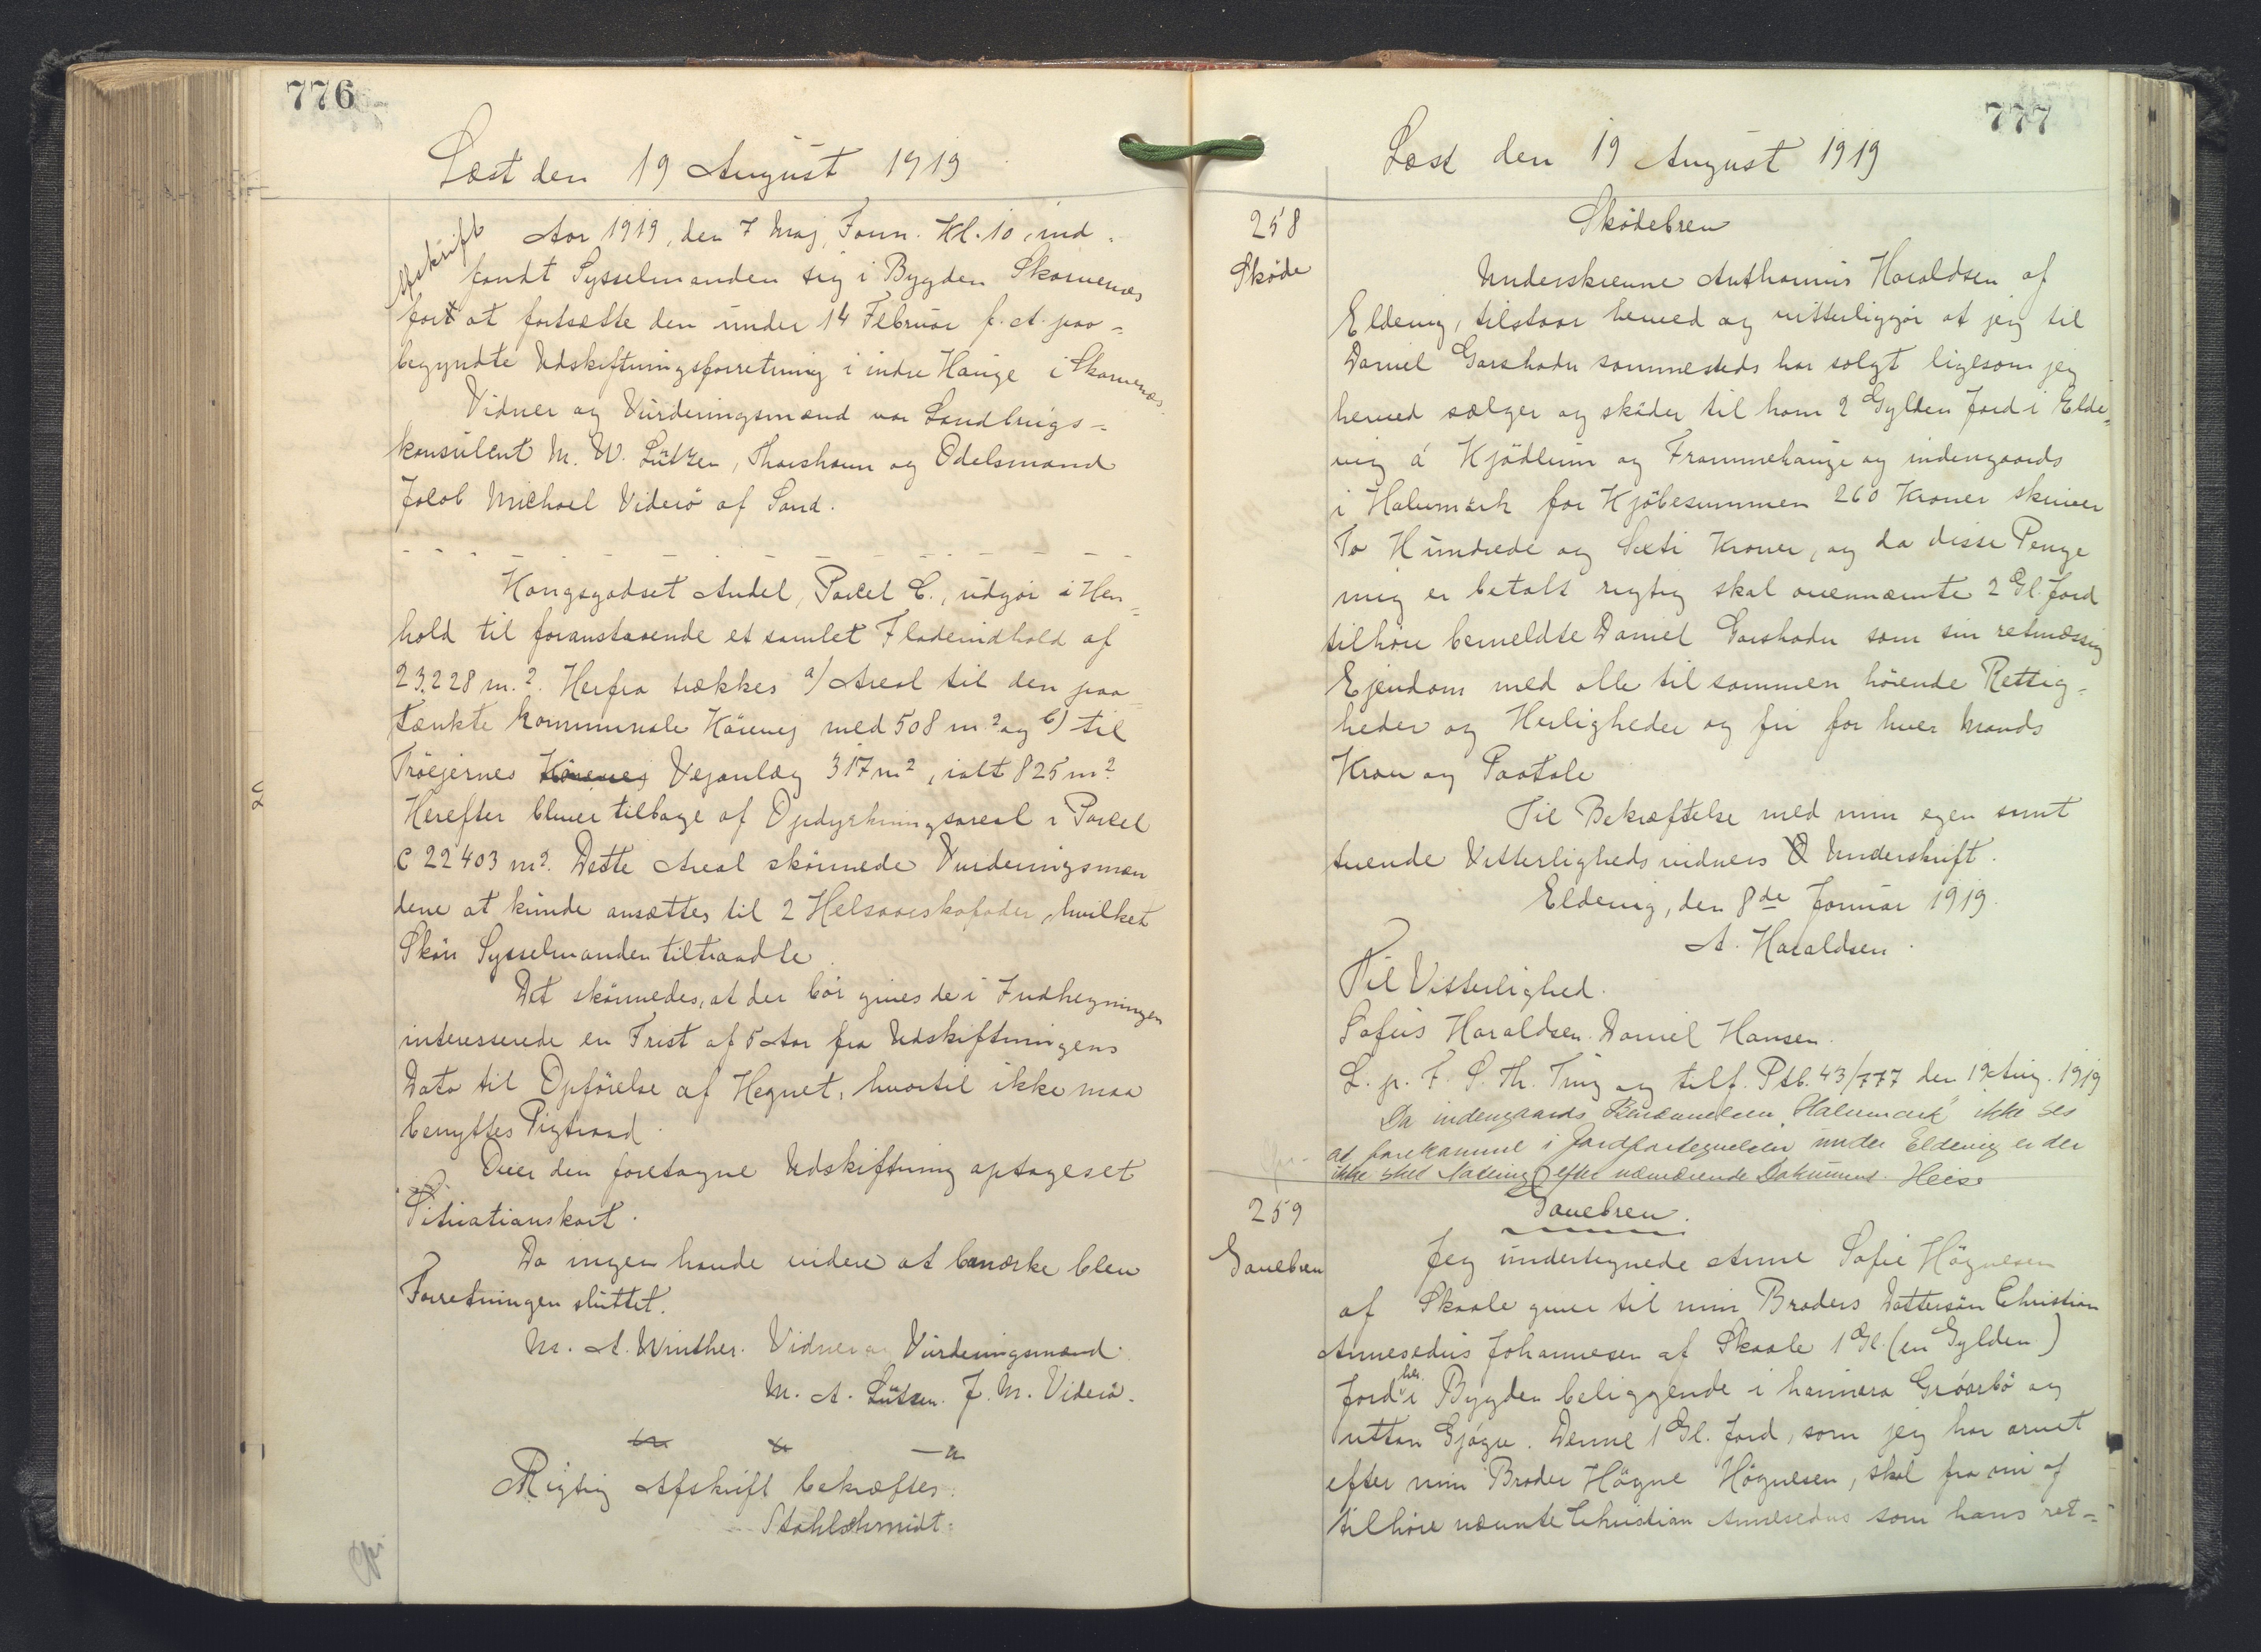 776
Læst den 19 August 1919
Afskrift
Aar 1919, den 7 Maj, Form. Kl. 10, ind-
fandt Sysselmanden sig i Bygden Skarvenæs
for at fortsætte den under 14 Februar f. A. paa-
begyndte Udskiftningsforretning i indre Hauge i Skarvenæs.
Vidner og Vurderingsmænd var Landbrugs-
konsulent M. W. Lützen, Thorshavn og Odelsmand
Jacob Michael Viderö af Sand.
Kongsgodset Andel, Parcel C., udgör i Hen-
hold til foranstaaende et samlet Fladeindhold af
23,228 m.². Herfra trækkes a) Areal til den paa-
tænkte kommunale Körevej med 508 m² og b) til
Tröejernes Körevej Vejanlæg 317 m², ialt 825 m²
Herefter bliver tilbage af Opdyrkningsareal i Parcel
C 22403 m². Dette Areal skönnede Vurderingsmæn
dene at kunde ansættes til 2 Helaarskofoder, hvilket
Skön Sysselmanden tiltraadte.
Det skönnedes, at der bör gives de i Indhegningen
interesserede en Frist af 5 Aar fra Udskiftningens
Dato til Opförelse af Hegnet, hvortil ikke maa
benyttes Pigtraad.
Over den foretagne Udskiftning optages et
Situationskort.
Da ingen havde videre at bemærke blev
Forretningen sluttet.
M. A. Winther. Vidner og Vurderingsmænd.
M. A. Lützen. J. M. Viderö.
Rigtig Afskrift bekræftes.
Stahlschmidt.
777
Læst den 19 August 1919
258
Sköde
Sködebrev
Underskrevne Anthonius Haraldsen af
Eldevig, tilstaar herved og vitterliggör at jeg til
Daniel Garshodn sammesteds har solgt ligesom jeg
herved sælger og sköder til ham 2 Gylden Jord i Elde-
vig á Kjödlum og Frammehauge og indengaards
i Halumark for Kjöbesummen 260 Kroner skriver
To Hundrede og Sexti Kroner, og da disse Penge
mig er betalt rigtig skal ovennævnte 2 Gl. Jord
tilhöre bemeldte Daniel Garshodn som sin retmæssig
Ejendom med alle til sammen hörende Rettig-
heder og Herligheder og fri for hver Mands
Krav og Paatale
Til Bekræftelse med min egen samt
tvende Vitterlighedsvidners Underskrift.
Eldevig, den 8de Januar 1919.
A. Haraldsen.
Til Vitterlighed.
Sofus Haraldsen. Daniel Hansen.
L. p. F. S. Th. Ting og tilf. Ptb. 43/777 den 19 Aug. 1919
Da indengaards Benævnelsen "Halumark" ikke ses
at forekomme i Jordfortegnelsen under Eldevig er der
ikke sket Notering efter nærværende Dokument. Heise
259
Gavebrev
Gavebrev.
Jeg undertegnede Anne Sofie Högnesen
af Skaale giver til min Broders Dattersön Christian
Annesedius Johannesen af Skaale 1 Gl. (en Gylden)
Jord her i Bygden beliggende i heimara Gróarbö og
uttan Gjógv. Denne 1 Gl. Jord, som jeg har arvet
efter min Broder Högne Högnesen, skal fra nu af
tilhöre nævnte Christian Annesedius som hans ret-